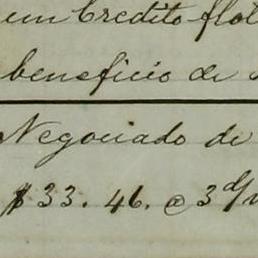 em Credito
beneficio de
Negociado de
$33. 46. @ 3 d/